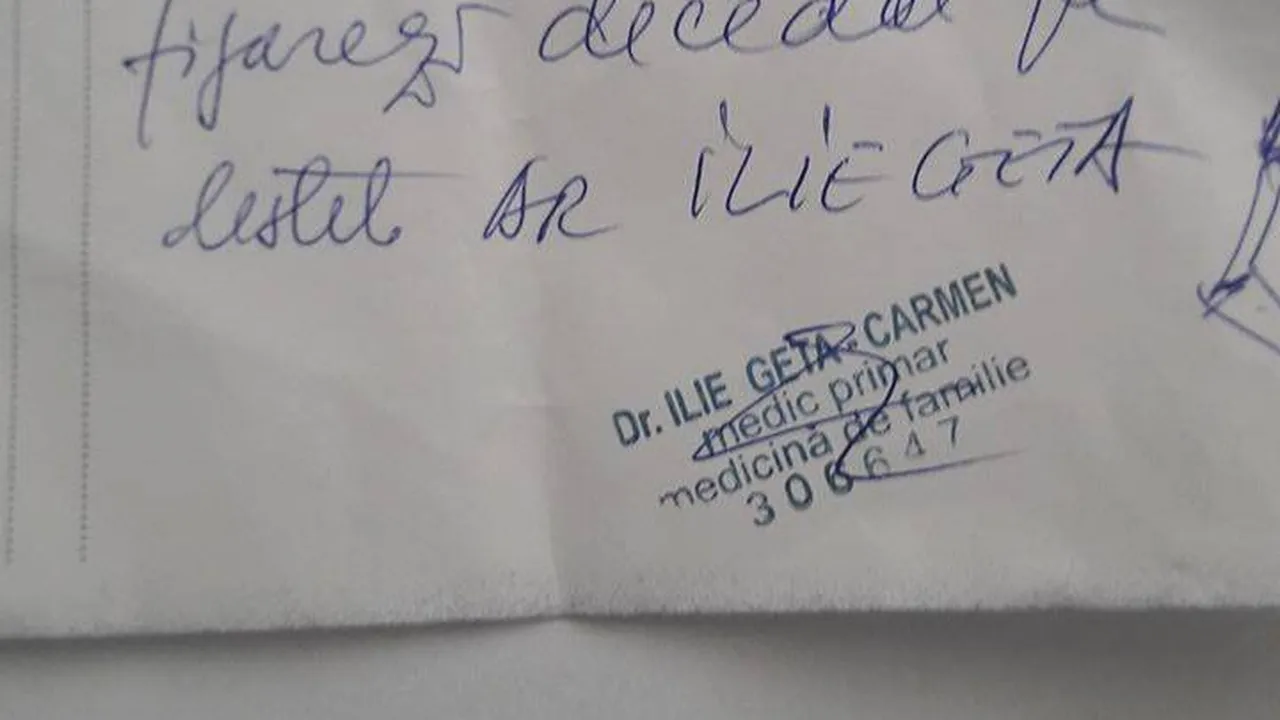 figurează decedat pe
AR ILIE GETA
Dr. ILIE GETA-CARMEN
medic primar
medicină de familie
306647